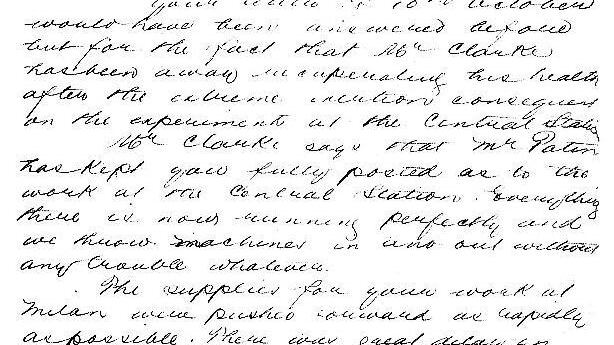 Your letter of 10th October
would have been answered before
but for the fact that Mr Clarke
has been away recuperating his health
after the extreme exertions consequent
on the experiments at the Central Station
Mr Clarke says that Mr Paton
has kept you fully posted as to the
work at the Central Station. Everything
there is now running perfectly and
we throw machines in and out without
any trouble whatever.
The supplies for your work at
Milan were pushed forward as rapidly
as possible. There was great delay in